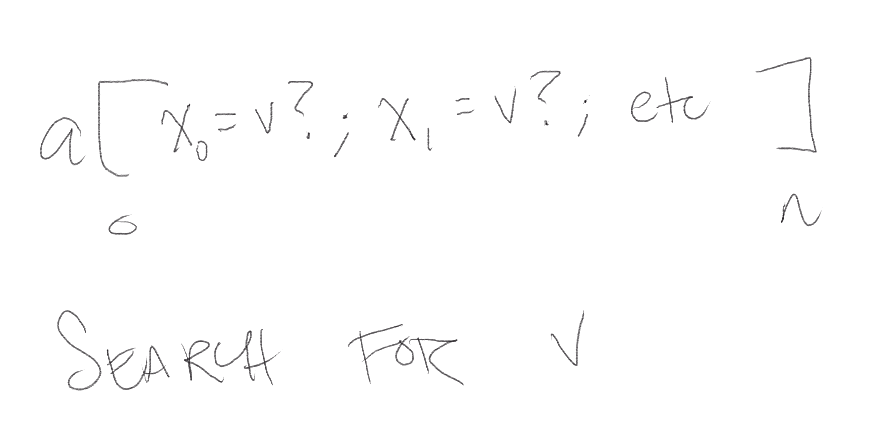 a[x₀=v?; x₁=v?; etc ]
0 n
SEARCH FOR v